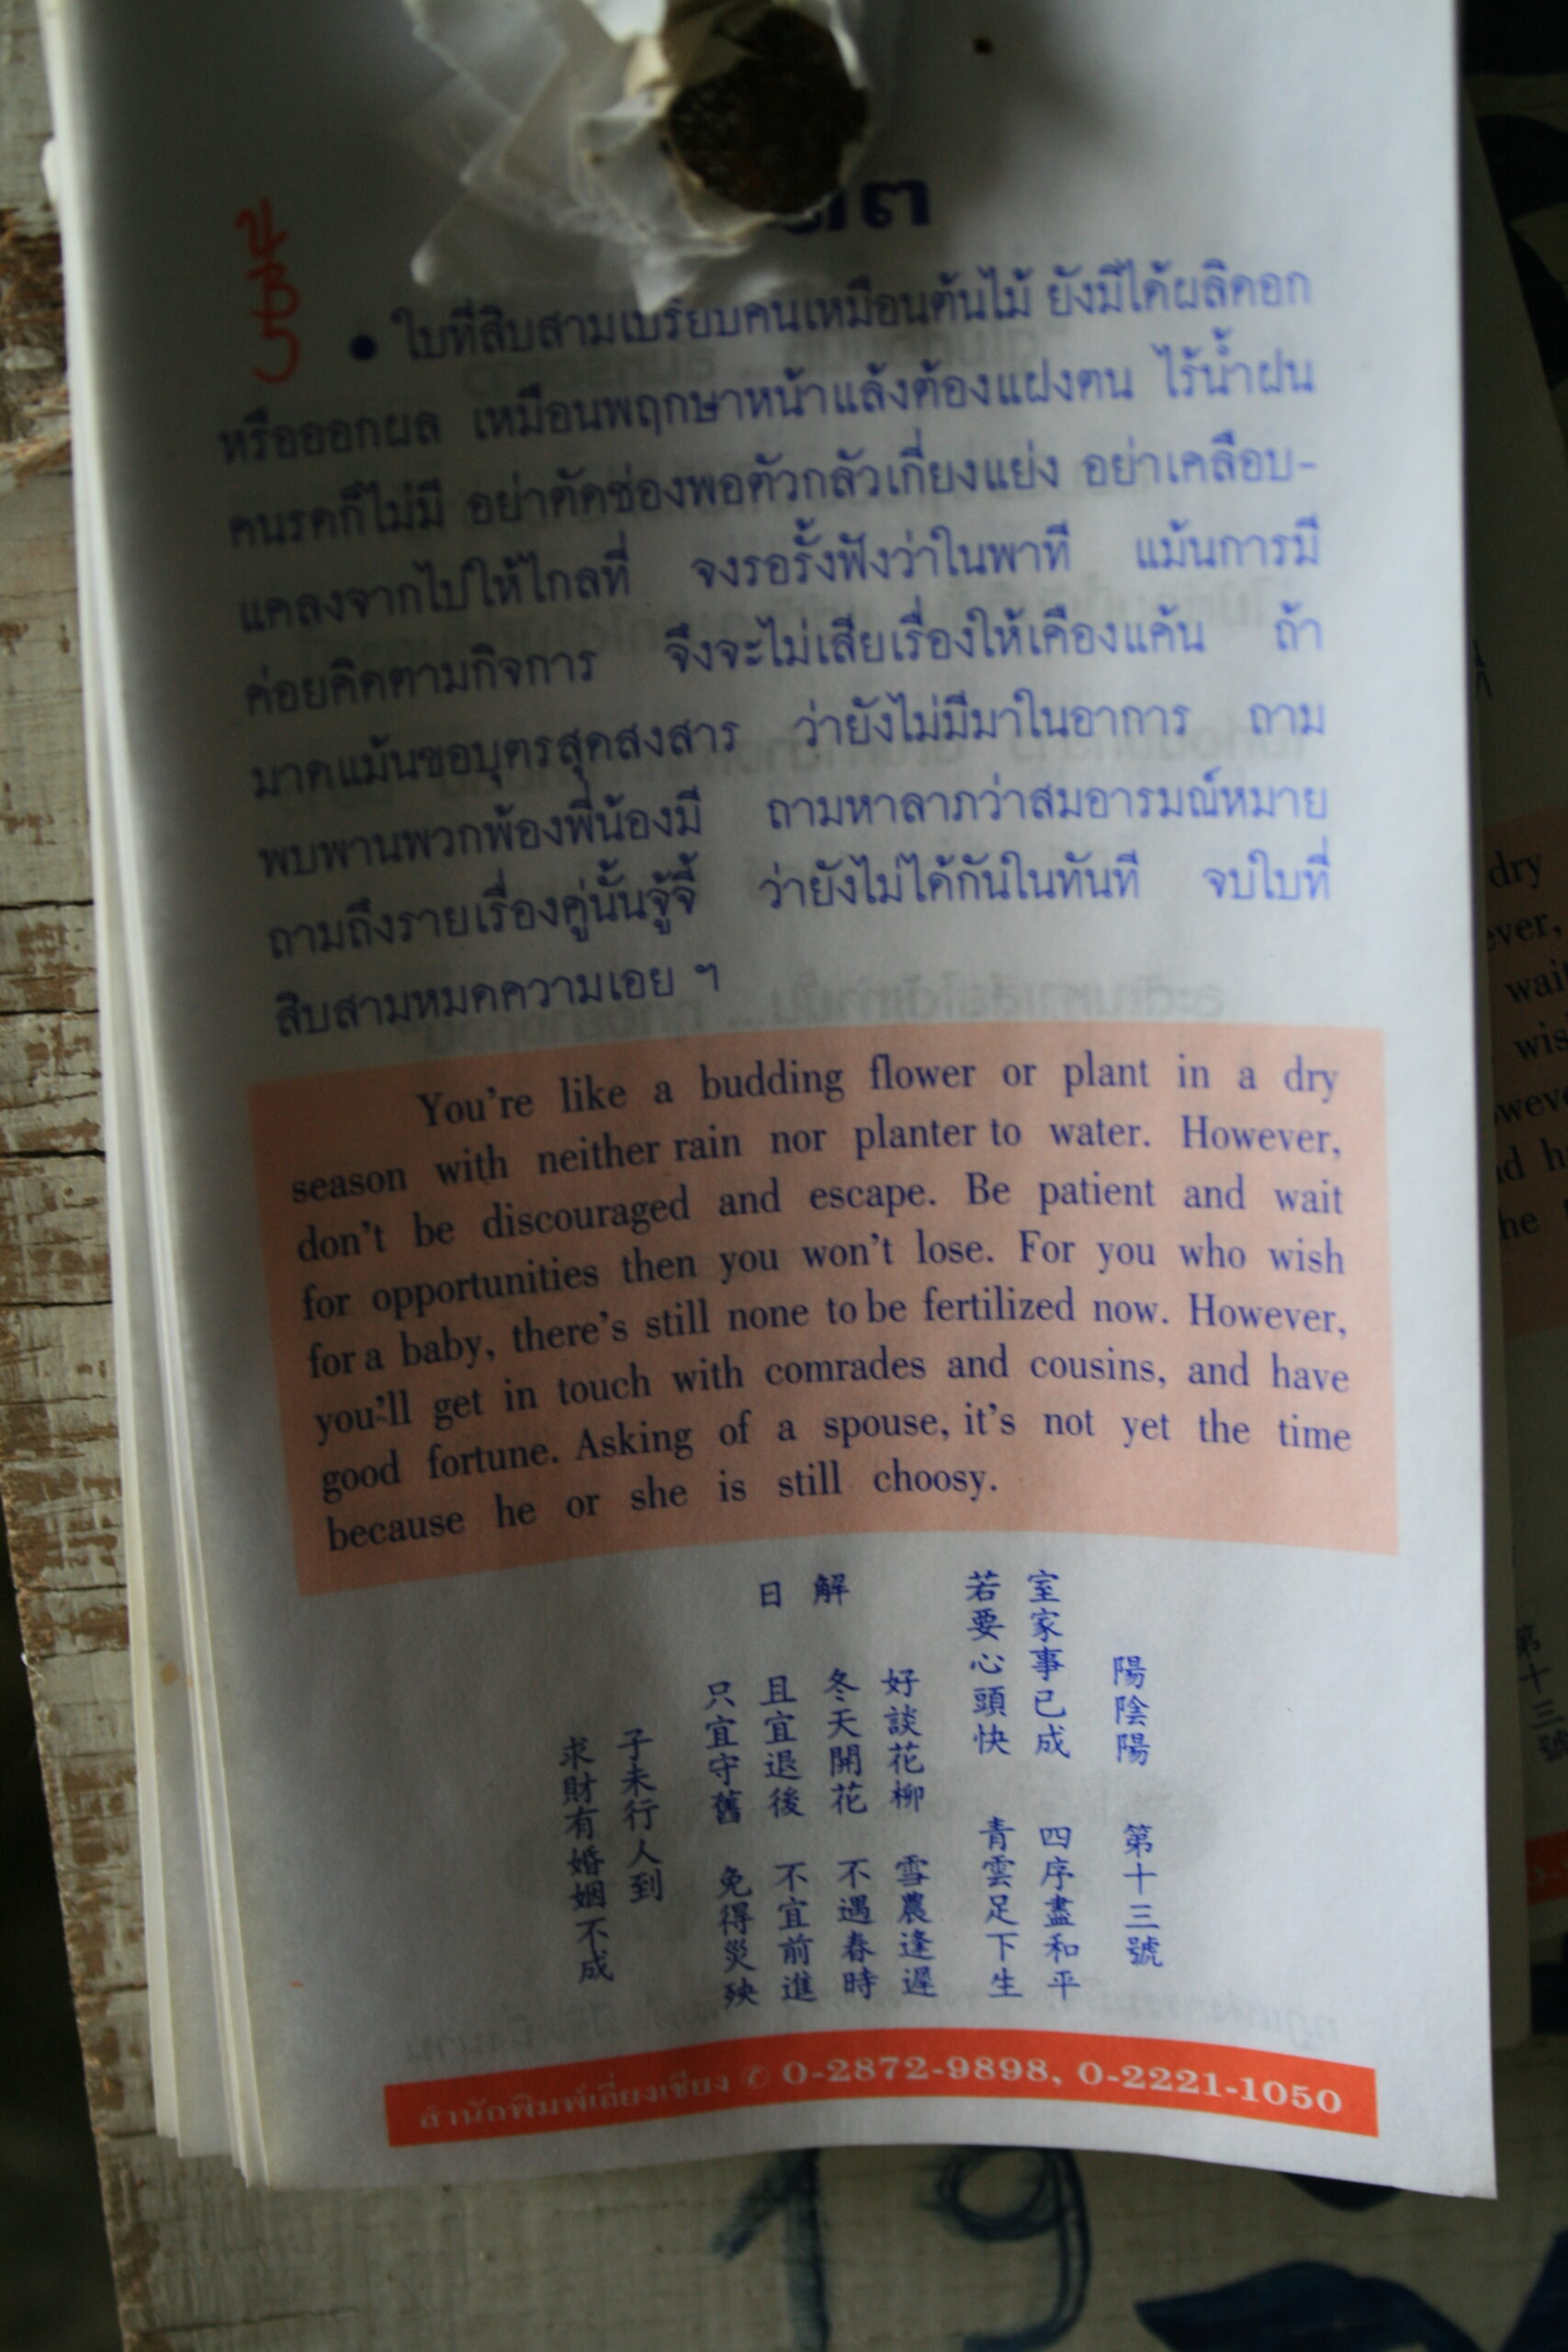 ๑๓
● ใบที่สิบสามเปรียบคนเหมือนต้นไม้ ยังมิได้ผลิดอก
หรือออกผล เหมือนพฤกษาหน้าแล้งต้องแฝงตน ไร้น้ำฝน
คนรดก็ไม่มี อย่าตัดช่องพอตัวกลัวเกี่ยงแย่ง อย่าเคลือบ-
แคลงจากไปให้ไกลที่ จงรอรั้งฟังว่าในพาที แม้นการมี
ค่อยคิดตามกิจการ จึงจะไม่เสียเรื่องให้เคืองแค้น ถ้า
มาดแม้นขอบุตรสุดสงสาร ว่ายังไม่มีมาในอาการ ถาม
พบพานพวกพ้องพี่น้องมี ถามหาลาภว่าสมอารมณ์หมาย
ถามถึงรายเรื่องคู่นั้นจู้จี้ ว่ายังไม่ได้กันในทันที จบใบที่
สิบสามหมดความเอย ฯ
You're like a budding flower or plant in a dry
season with neither rain nor planter to water. However,
don't be discouraged and escape. Be patient and wait
for opportunities then you won't lose. For you who wish
for a baby, there's still none to be fertilized now. However,
you'll get in touch with comrades and cousins, and have
good fortune. Asking of a spouse, it's not yet the time
because he or she is still choosy.
陽陰陽 第十三號
室家事已成 四序盡和平
若要心頭快 青雲足下生
解
日
好談花柳 雪農逢遲
冬天開花 不遇春時
且宜退後 不宜前進
只宜守舊 免得災殃
子未行人到
求財有婚姻不成
สำนักพิมพ์เลี่ยงเซียง ✆ 0-2872-9898, 0-2221-1050
19
dry
ever,
wait
wis
oweve
nd h
he
第十三號